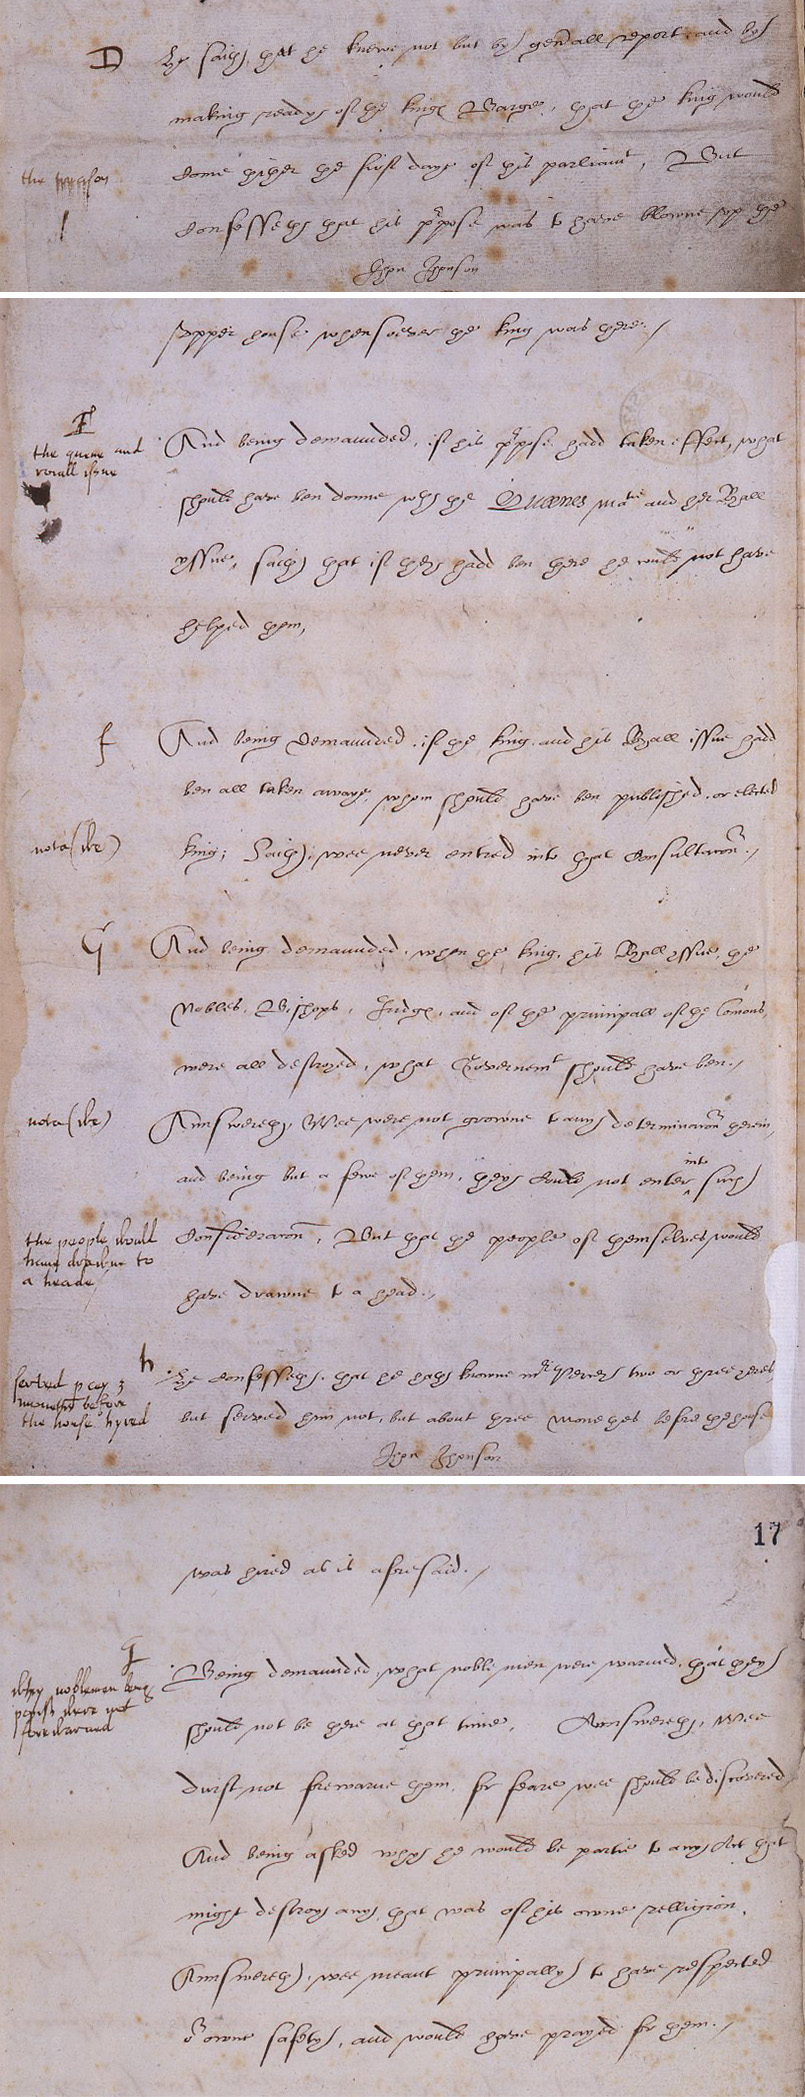 D He saith, that he knewe not but by gen'all report, and by
making ready of the kings Barge, that the king would
the treason
come thither the first daye of this parliamt, But
confesseth that his p'pose was to have blowne up the
Jhon Jhonson
upper house whensoever the king was there./
E
the queene and
roiall issue
And being demaunded, if his p'pose hadd taken effect, what
should have ben donne wth the Queenes matie and her Royall
yssue, saith that if they hadd ben there he would not have
helped them,
f And being demaunded, if the king, and his Royall issue hadd
ben all taken awaye, whom should have ben published, or elected
nota (ibe) king; Saith, wee never entred into that Consultacon./
G And being demaunded, when the king, his Royall yssue, the
Nobles, Bishops, Judges, and of the principall of the Comons,
were all destroyed, what Governemt should have ben./
nota (ibe) Answereth, Wee were not growne to any determinacon therein,
and being but a fewe of them, they could not enter into such
the people would
have drawne to
a heade/
consideracon, But that the people of themselves would
have drawne to a head./
h
served percy 3
moneths before
the house hyred
He confesseth, that he hath knowne mr Percy two or three yeres
but served him not, but about three monethes before the house
Jhon Jhonson
17
was hired as is aforesaid./
Why noblemen being
papists were not
forewarned
Being demaunded, what noble men were warned, that they
should not be there at that time, Answereth, Wee
durst not forewarne them for feare wee should be discovered
And being asked why he would be partie to any Act that
might destroy any, that was of his owne relligion,
Answereth, wee meant principally to have respected
or owne safety, and would have prayed for them./